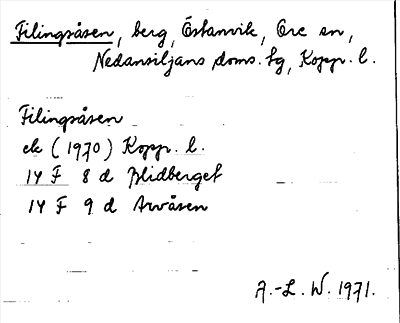 Filingsåsen, berg, Östanvik, Ore sn,
Nedansiljans doms. tg, Kopp. l.
Filingsåsen
ek (1970) Kopp. l.
14 F 8 d Blidberget
14 F 9 d Arvåsen
A.-L. W. 1971.